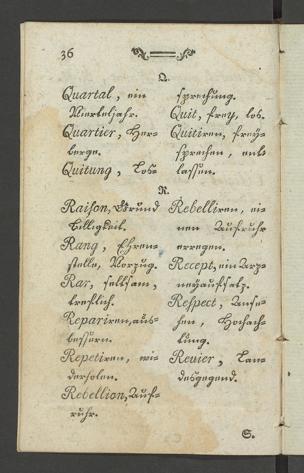 36
Q.
Quartal, ein
Vierteljahr.
Quartier, Her-
berge.
Quitung, Los-
sprechung.
Quit, frey, los.
Quitiren, frey-
sprechen, ent-
lassen.
R.
Raison, Grund
Billigkeit.
Rang, Ehren-
stelle, Vorzug.
Rar, seltsam,
trefflich.
Repariren, aus-
bessern.
Repetiren, wi-
derholen.
Rebellion, Auf-
ruhr.
Rebelliren, ei-
nen Aufruhr
erregen.
Recept, ein Arz-
neyaufsatz.
Respect, Anse-
hen, Hochach-
tung.
Revier, Lan-
desgegend.
S.